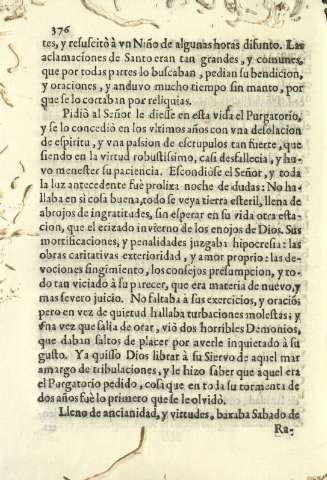 376
tes, y resuscitò à vn Niño de algunas horas difunto. Las
aclamaciones de Santo eran tan grandes, y comunes,
que por todas partes lo buscaban, pedian su bendicion,
y oraciones, y anduvo mucho tiempo sin manto, por
que se lo cortaban por reliquias.
Pidiò al Señor le diesse en esta vida el Purgatorio,
y se lo concediò en los vltimos años con vna desolacion
de espiritu, y vna passion de escrupulos tan fuerte, que
siendo en la virtud robustissimo, casi desfallecia, y hu-
vo menester su paciencia. Escondiòse el Señor, y toda
la luz antecedente fuè proliza noche de dudas: No ha-
llaba en si cosa buena, todo se veya tierra esteril, llena de
abrojos de ingratitudes, sin esperar en su vida otra esta-
cion, que el erizado invierno de los enojos de Dios. Sus
mortificaciones, y penalidades juzgaba hipocresia: las
obras caritativas exterioridad, y amor proprio: las de-
vociones fingimiento, los consejos presumpcion, y to-
do tan viciado à su parecer, que era materia de nuevo, y
mas severo juicio. No faltaba à sus exercicios, y oraciõ
pero en vez de quietud hallaba turbaciones molestas; y
vna vez que salia de orar, viò dos horribles Demonios,
que daban saltos de placer por averle inquietado à su
gusto. Ya quisso Dios librar à su Siervo de aquel mar
amargo de tribulaciones, y le hizo saber que aquel era
el Purgatorio pedido, cosa que en toda su tormenta de
dos años fuè lo primero que se le olvidò.
Lleno de ancianidad, y virtudes, baxaba Sabado de
Ra-